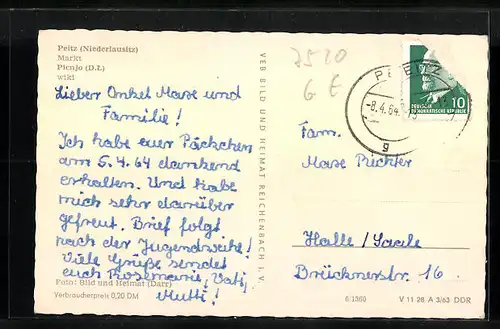 Peitz (Niederlausitz)
Markt
Picnjo (D.L.)
wiki
Lieber Onkel Maxe und
Familie!
Ich habe euer Päckchen
am 5.4.64 dankend
erhalten. Und habe
mich sehr darüber
gefreut. Brief folgt
nach der Jugendweihe!
Viele Grüße sendet
euch Rosemarie, Vati,
Mutti!
Foto: Bild und Heimat (Darr)
Verbraucherpreis 0,20 DM
VEB BILD UND HEIMAT REICHENBACH I. V.
7520
G E
PEITZ
-8.4.64
g
10
DEUTSCHE
DEMOKRATISCHE REPUBLIK
Fam.
Maxe Richter
Halle/Saale
Brücknerstr. 16
G 1360
V 11 28 A 3/63 DDR